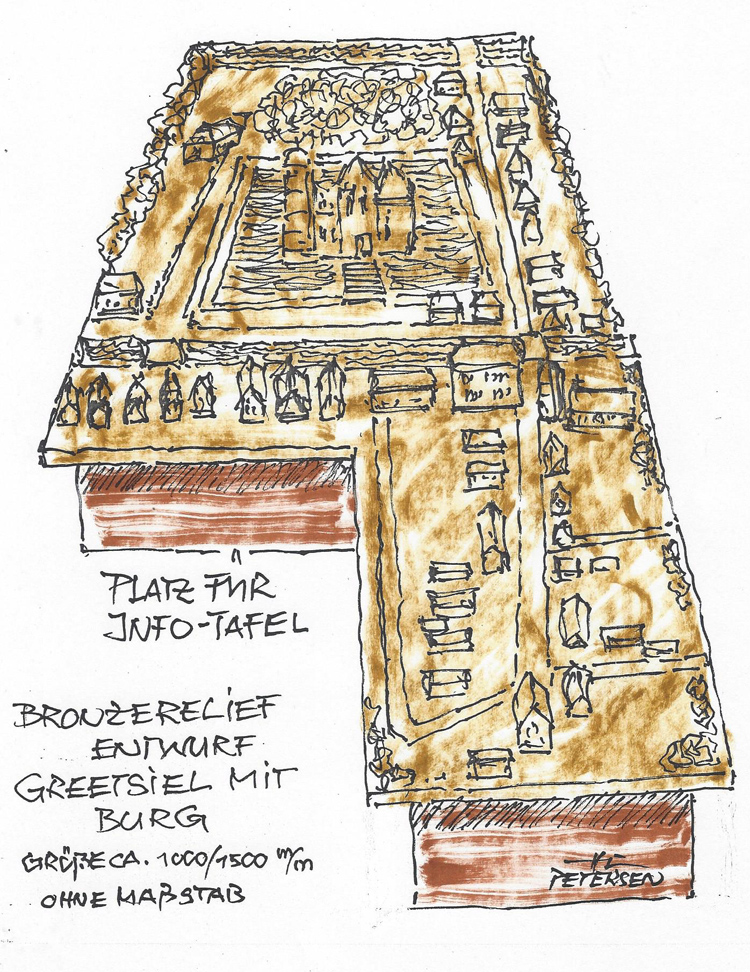 PLATZ FÜR
INFO-TAFEL
BRONZERELIEF
ENTWURF
GREETSIEL MIT
BURG
GRÖßE CA. 1000/1500 m/m
OHNE MAßSTAB
HC
PETERSEN